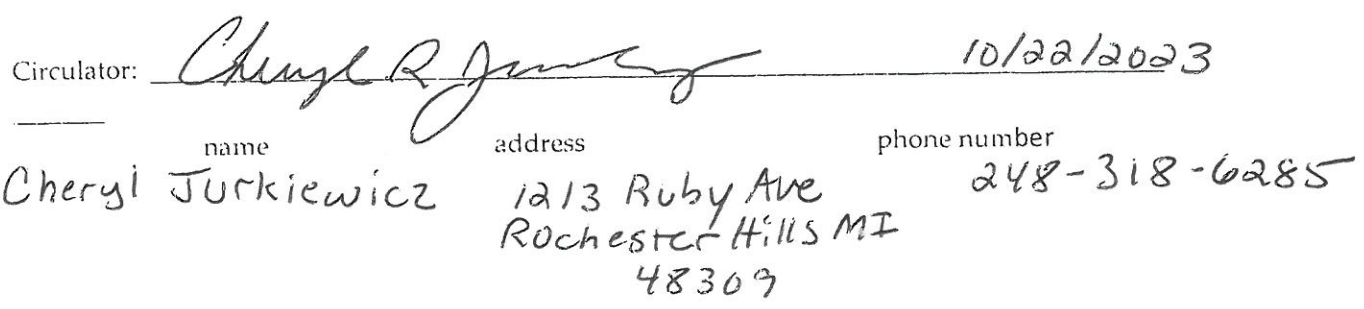 Circulator: Cheryl R Jurkiewicz 10/22/2023
name address phone number
Cheryl Jurkiewicz 1213 Ruby Ave 248-318-6285
Rochester Hills MI
48309